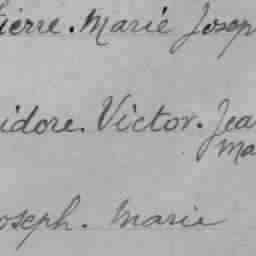 ierre. Marie Josep
idore. Victor. Jea
Ma
oseph. Marie